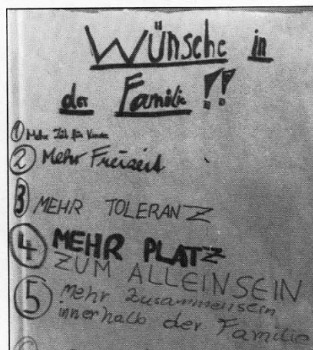 WÜNSCHE in
der Familie!!
① Mehr Zeit für Kinder
② Mehr Freizeit
③ MEHR TOLERANZ
④ MEHR PLATZ
ZUM ALLEINSEIN
⑤ Mehr Zusammensein
innerhalb der Familie